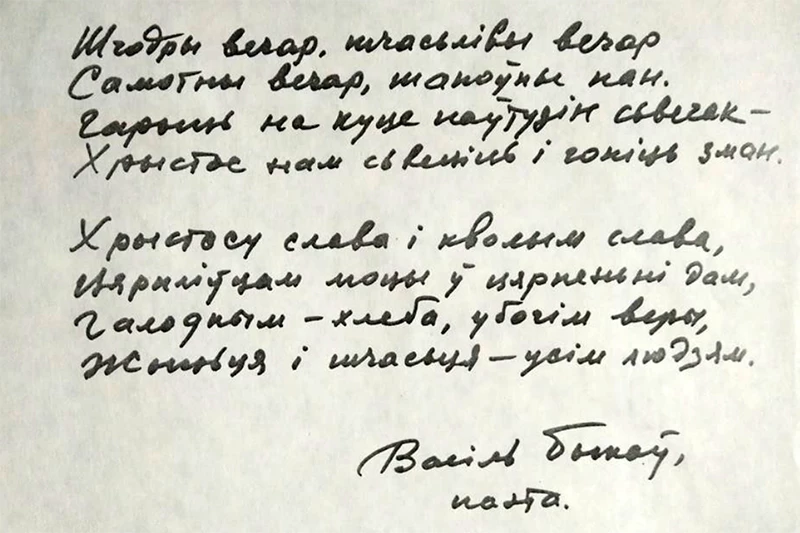 Шчодры вечар, шчасьлівы вечар
Самотны вечар, шаноўны пан.
Гарыць на куце паўтузін сьвечак –
Хрыстос нам сьвеціць і гоніць зман.
Хрыстосу слава і кволым слава,
Цярпліўцам моцы ў цярпеньні дам,
Галодным – хлеба, убогім веры,
Жыцьця і шчасьця – усім людзям.
Васіль Быкаў,
паэта.